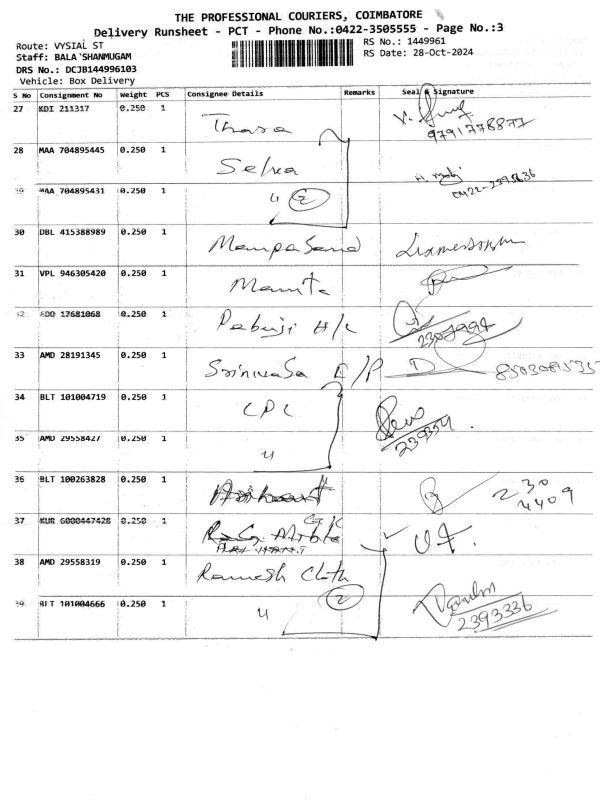 THE PROFESSIONAL COURIERS, COIMBATORE
Delivery Runsheet - PCT - Phone No.:0422-3505555 - Page No.:3
Route: VYSIAL ST
RS No.: 1449961
Staff: BALA`SHANMUGAM
RS Date: 28-Oct-2024
DRS No.: DCJB144996103
Vehicle: Box Delivery
S No Consignment No Weight PCS Consignee Details Remarks Seal & Signature
27 KDI 211317 0.250 1
9791778877
28 MAA 704895445 0.250 1 Selva
29 MAA 704895431 0.250 1 u 2
30 DBL 415388989 0.250 1
31 VPL 946305420 0.250 1 Mamta
32 EDO 17681068 0.250 1
33 AMD 28191345 0.250 1 Srinivasa E/P
34 BLT 101004719 0.250 1 CPC
35 AMD 29558427 0.250 1 u
36 BLT 100263828 0.250 1 230
4409
37 KUR 6000447428 0.250 1
38 AMD 29558319 0.250 1 Ramesh Cloth
39 BLT 101004666 0.250 1 u 2
2393336